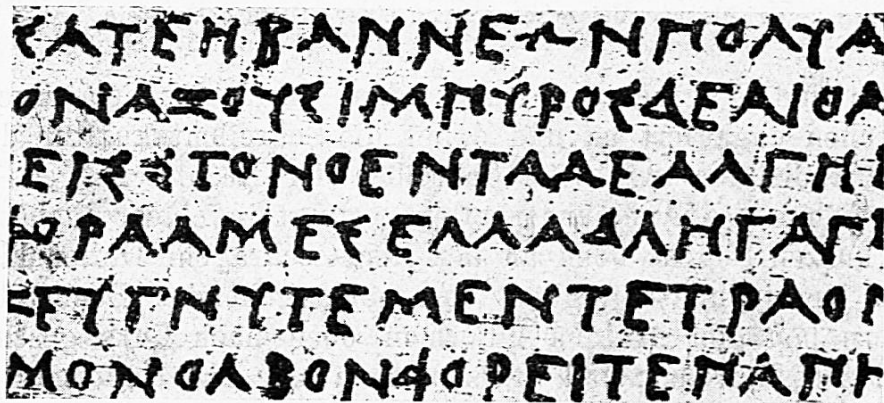 ΣΑΤΕΗΒΑΝΝΕΩΝΠΟΛΥΑ
ΟΝΑΞΟΥΣΙΜΠΥΡΟΣΔΕΑΙΘΑ
ΕΙΣΣΤΟΝΟΕΝΤΑΔΕΑΛΓΗΕ
ΦΟΡΑΑΜΕΣΕΛΛΑΔΑΗΓΑΓΕ
ΖΕΥΓΝΥΤΕΜΕΝΤΕΤΡΑΟΝ
ΜΟΝΟΛΒΟΝΦΟΡΕΙΤΕΠΑΠΗ